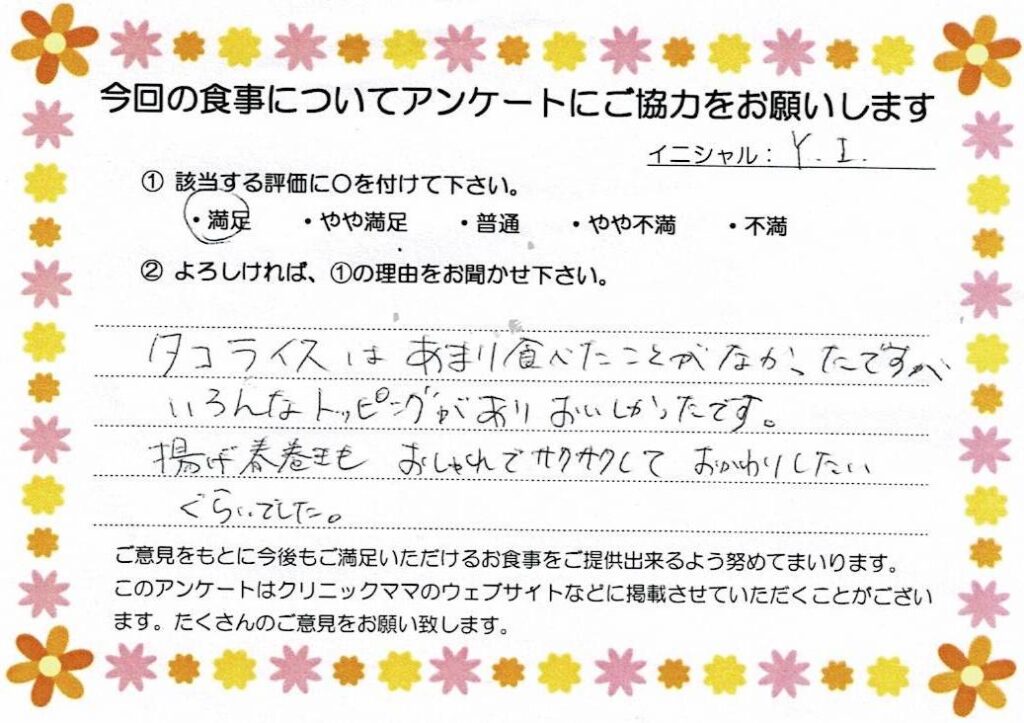 今回の食事についてアンケートにご協力をお願いします
イニシャル： Y. I.
① 該当する評価に〇を付けて下さい。
・満足 ・やや満足 ・普通 ・やや不満 ・不満
② よろしければ、①の理由をお聞かせ下さい。
タコライスは あまり食べたことがなかったですが
いろんなトッピングがあり おいしかったです。
揚げ春巻きも おしゃれでサクサクして おかわりしたい
ぐらいでした。
ご意見をもとに今後もご満足いただけるお食事をご提供出来るよう努めてまいります。
このアンケートはクリニックママのウェブサイトなどに掲載させていただくことがござい
ます。たくさんのご意見をお願い致します。